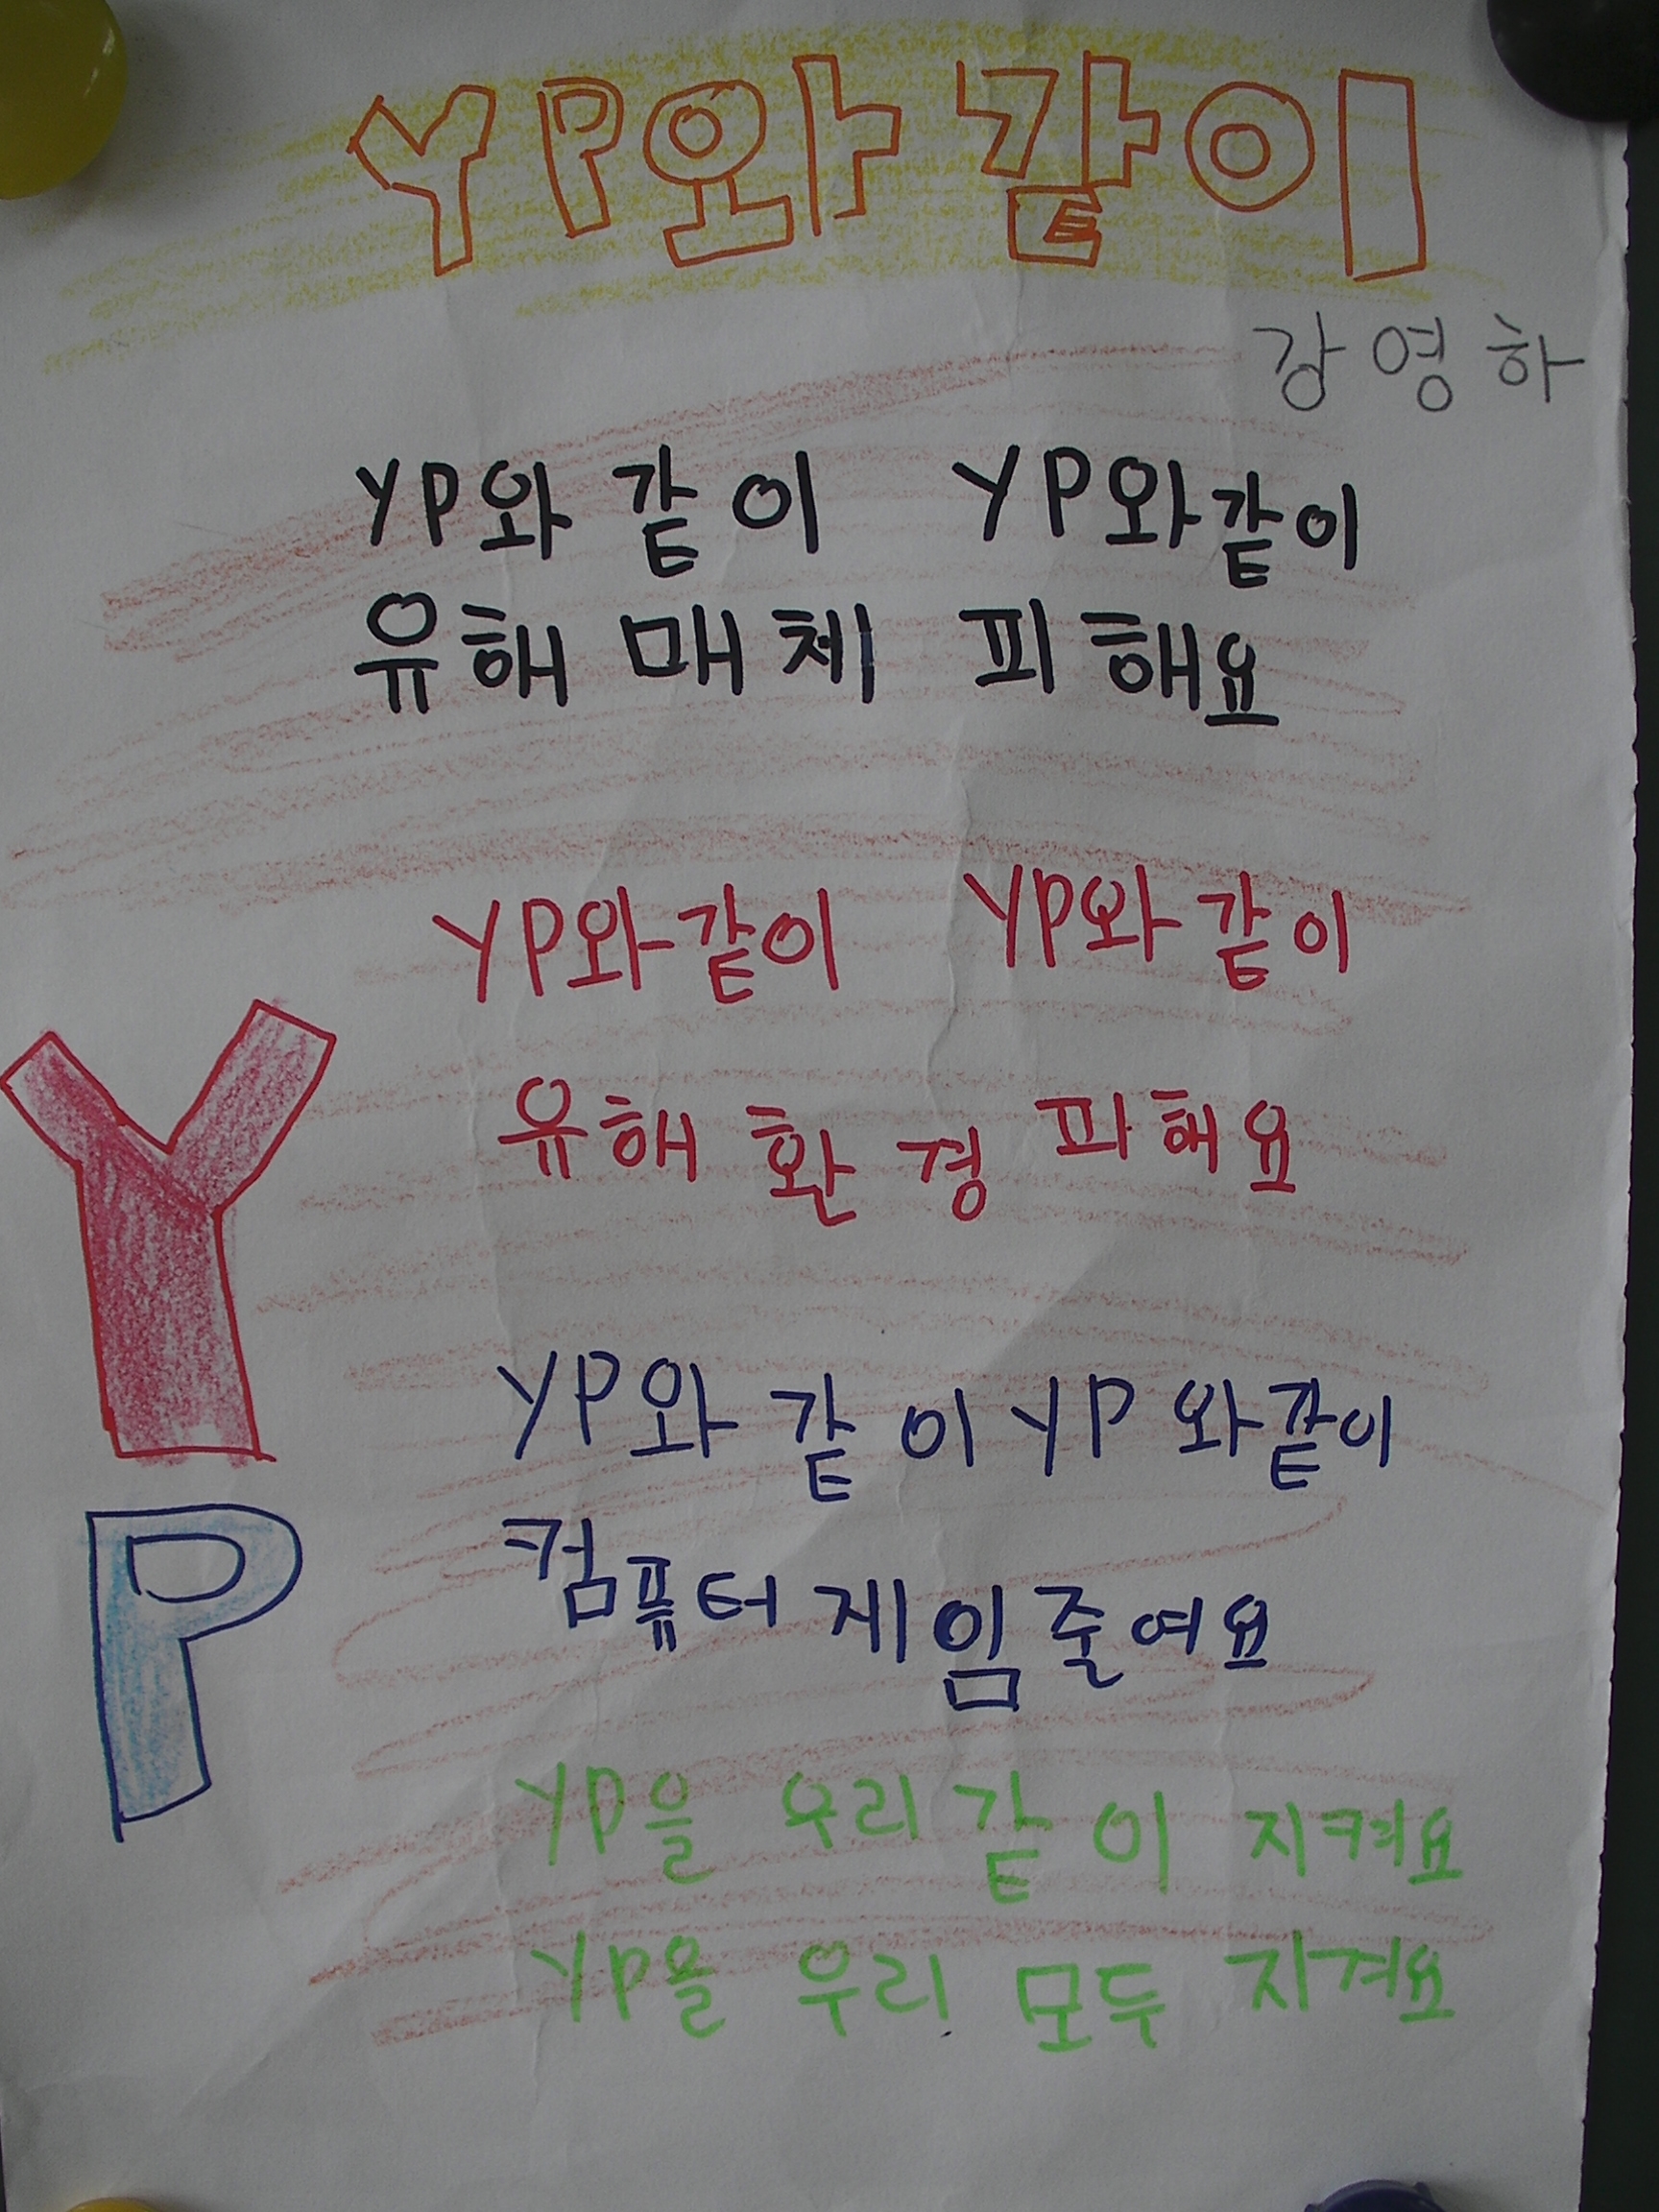 YP와 같이
강영하
YP와 같이 YP와같이
유해 매체 피해요
YP와같이 YP와 같이
유해 환경 피해요
YP와 같이 YP와같이
컴퓨터 게임 줄여요
YP을 우리 같이 지켜요
YP을 우리 모두 지겨요
Y
P